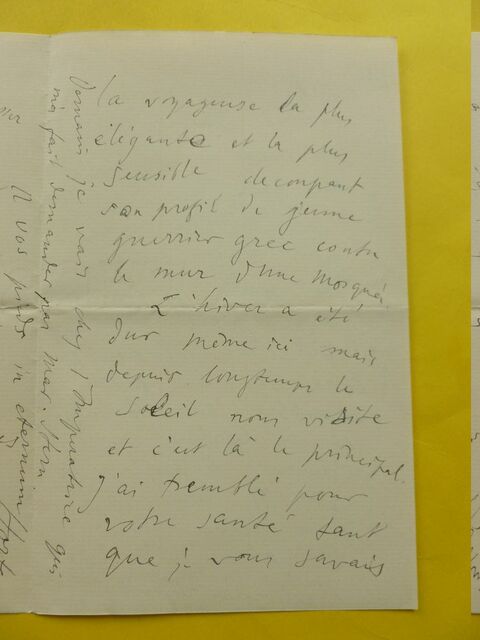 la voyageuse la plus
élégante et la plus
sensible decoupant
son profil de jeune
guerrier grec contre
le mur d'une Mosquée
L'hiver a été
dur même ici mais
depuis longtemps le
soleil nous visite
et c'est là le principal.
j'ai tremblé pour
votre santé tant
que je vous savais
Demain je vais chez l'Impératrice qui
m'a fait demander par Mar. Stern
A vos pieds in eternum